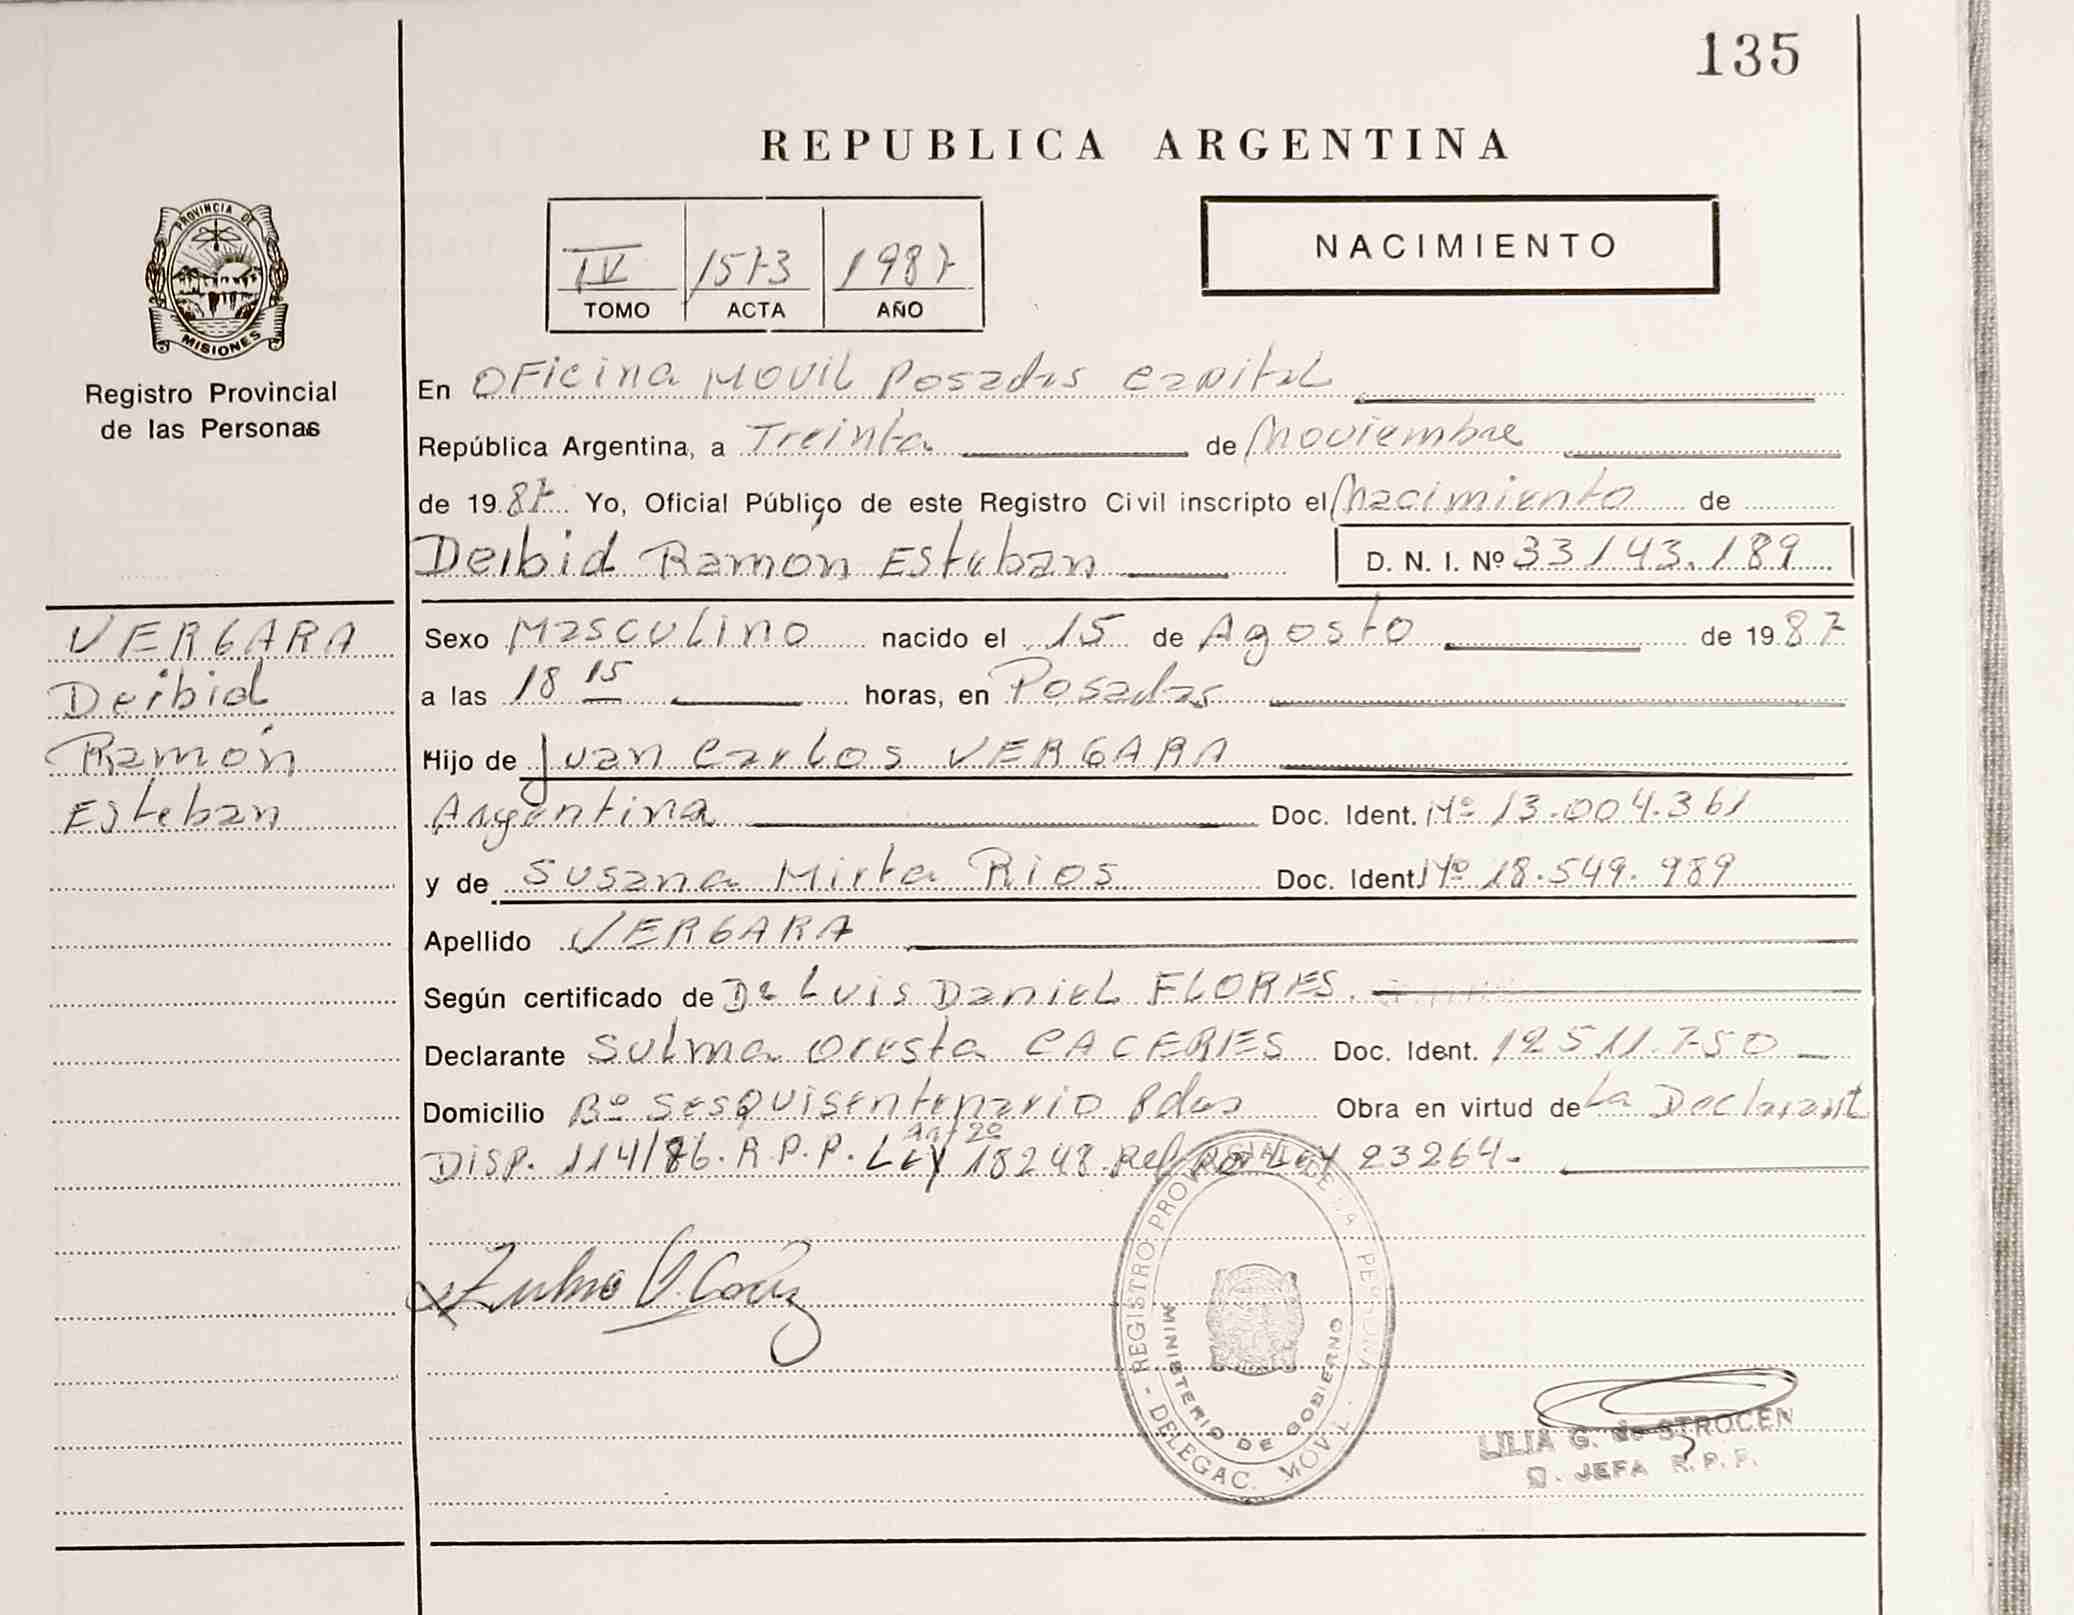 135
REPUBLICA ARGENTINA
PROVINCIA DE
MISIONES
Registro Provincial
de las Personas
IV 1573 1987
TOMO ACTA AÑO
NACIMIENTO
En Oficina Movil Posadas Capital
República Argentina, a Treinta de Noviembre
de 1987 Yo, Oficial Público de este Registro Civil inscripto el Nacimiento de
Deibid Ramón Esteban D. N. I. Nº 33143.189
VERGARA
Deibid
Ramón
Esteban
Sexo Masculino nacido el 15 de Agosto de 1987
a las 18 15 horas, en Posadas
Hijo de Juan Carlos VERGARA
Argentina Doc. Ident. Nº 13.004.361
y de Susana Mirta Rios Doc. Ident Nº 18.549.989
Apellido VERGARA
Según certificado de Dr Luis Daniel FLORES.
Declarante Sulma Oresta CACERES Doc. Ident. 12511.750
Domicilio Bº Sesquisentenario Pdas Obra en virtud de La Declarant
Disp. 114/86. R.P.P. Ley 18248. Ref por Ley 23264.
- REGISTRO PROVINCIAL DE LA PERSONA
MINISTERIO DE GOBIERNO
DELEGAC. MOVIL -
LILIA G. de STROCEN
JEFA R. P. P.